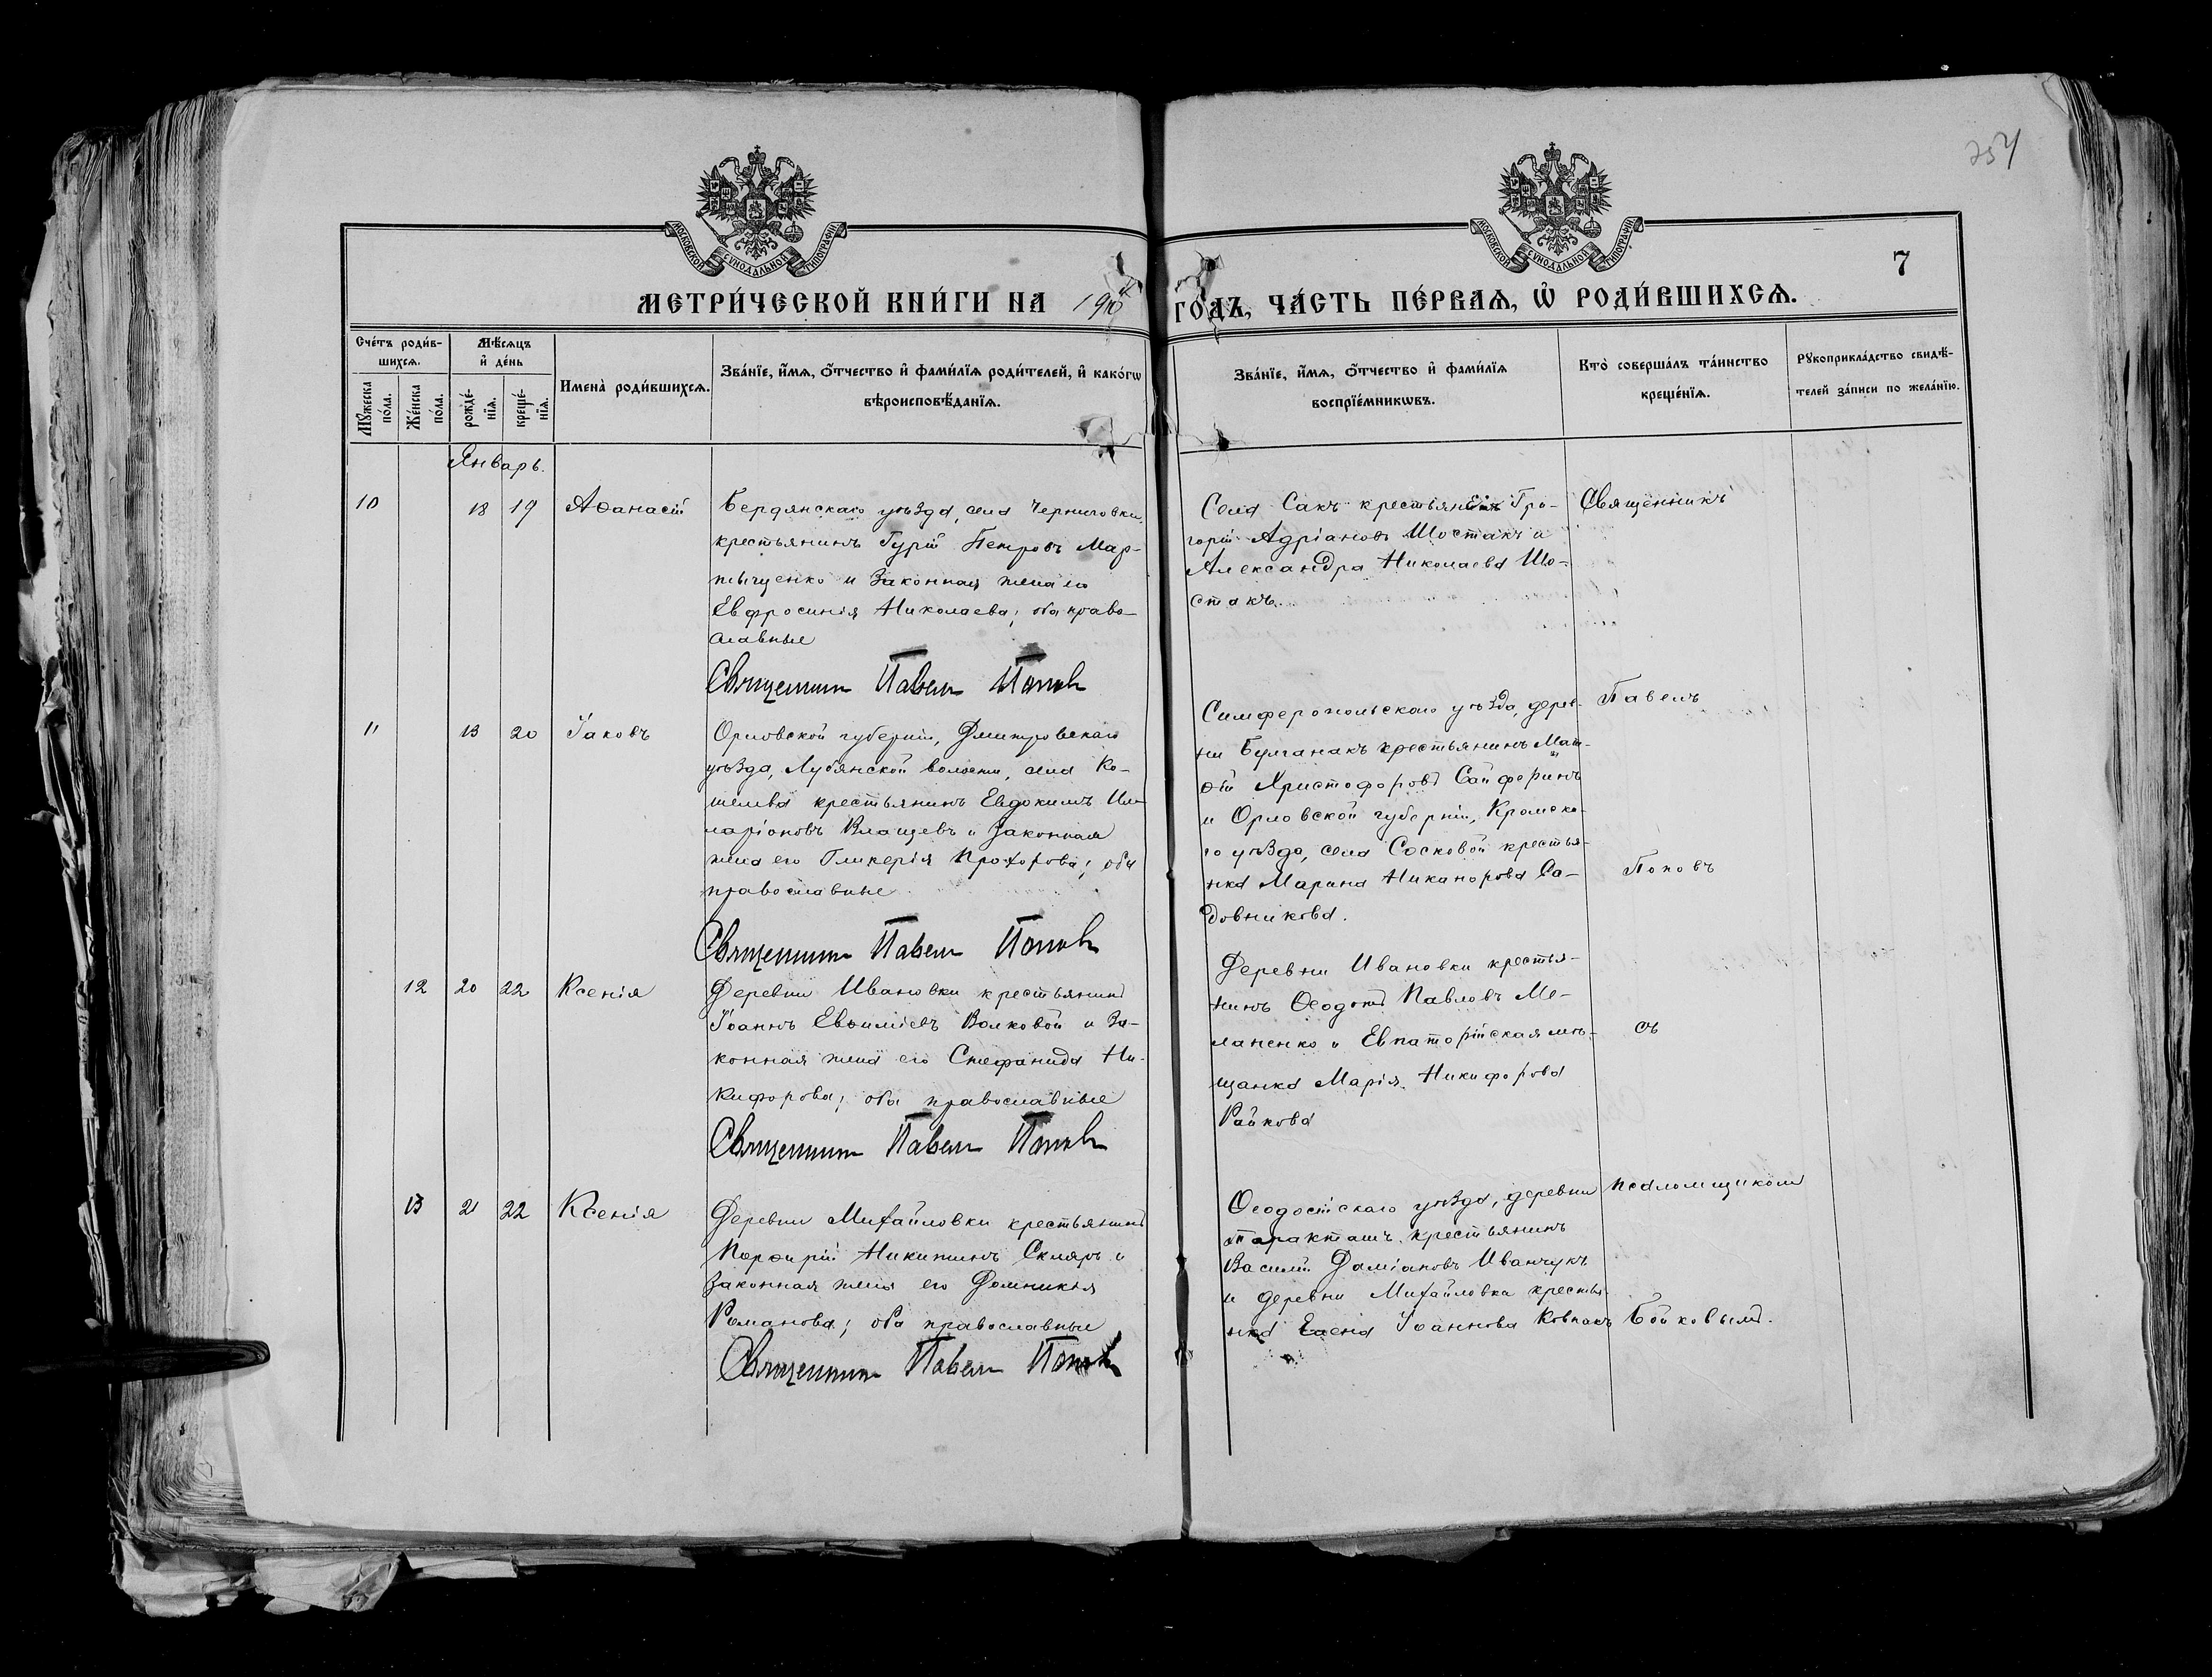 254
МОСКОВСКОЙ СѴНОДАЛЬНОЙ ТИПОГРАФІИ
МОСКОВСКОЙ СѴНОДАЛЬНОЙ ТИПОГРАФІИ
7
МЕТРИ́ЧЕСКОЙ КНИ́ГИ НА 1910 ГО́ДЪ, ЧА́СТЬ ПЕ́РВАѦ, Ѡ҆ РОДИ́ВШИХСѦ.
Сче́тъ роди́в-
шихсѧ.
Мꙋ́жеска по́ла.
Же́нска по́ла.
Мѣ́сѧцъ
и҆ де́нь
рожде́-
нїѧ.
креще́-
нїѧ.
Имена̀ роди́вшихсѧ.
Зва́нїе, и҆́мѧ, ѻ҆́тчество и҆ фами́лїѧ роди́телей, и҆ како́гѡ
вѣроисповѣ́данїѧ.
Зва́нїе, и҆́мѧ, ѻ҆́тчество и҆ фами́лїѧ
воспрїе́мникѡвъ.
Кто̀ соверша́лъ та́инство
креще́нїѧ.
Рꙋкоприкла́дство свидѣ́-
телей за́писи по жела́нїю.
Январь.
10 18 19 Аѳанасій
Бердянскаго уѣзда, села Черниговки,
крестьянинъ Гурій Петровъ Мар-
тыщенко и законная жена его
Евфросинія Николаева; оба право-
славные
Священникъ Павелъ Поповъ
Села Сакъ крестьяне Гри-
горій Адріановъ Шостакъ и
Александра Николаева Шо-
стакъ.
Священникъ
11 13 20 Іаковъ
Орловской губерніи, Дмитровскаго
уѣзда, Лубянской волости, села Ко-
шелева крестьянинъ Евдокимъ Ил-
ларіоновъ Влащевъ и законная
жена его Гликерія Прохорова; оба
православные
Священникъ Павелъ Поповъ
Симферопольскаго уѣзда, дерев-
ни Булганакъ крестьянинъ Мат-
ѳій Христофоровъ Сайферинъ
и Орловской губерніи, Кромска-
го уѣзда, села Сосковой крестья-
нка Марина Никанорова Са-
довникова.
Павелъ
Поповъ
12 20 22 Ксенія
Деревни Ивановки крестьянинъ
Іоаннъ Евѳиміевъ Волковой и за-
конная жена его Стефанида Ни-
кифорова; оба православные
Священникъ Павелъ Поповъ
Деревни Ивановки крестья-
нинъ Ѳеодотъ Павловъ Ме-
лапенко и Евпаторійская мѣ-
щанка Марія Никифорова
Райкова
съ
13 21 22 Ксенія
Деревни Михайловки крестьянинъ
Порфирій Никитинъ Скляръ и
законная жена его Домникія
Романова; оба православные
Священникъ Павелъ Поповъ
Ѳеодосійскаго уѣзда, деревни
Таракташъ крестьянинъ
Василій Даміановъ Иванчукъ
и деревни Михайловка крестья-
нка Елена Іоаннова Ковпакъ
псаломщикомъ
Бойковымъ.